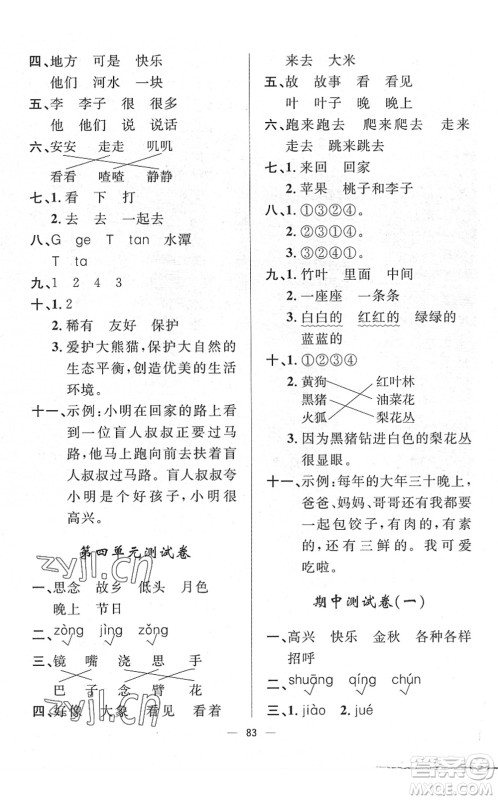 四、地方 可是 快乐
他们 河水 一块
五、李 李子 很 很多
他 他们 说 说话
六、安安 走走 叽叽
看看 喳喳 静静
七、1. 看 下 打
2. 去 去 一起去
八、G ge T tan 水潭
T ta
九、1 2 4 3
十、1. 2
2. 稀有 友好 保护
3. 爱护大熊猫,保护大自然的
生态平衡,创造优美的生活
环境。
十一、示例:小明在回家的路上看
到一位盲人叔叔正要过马
路,他马上走向前去扶着盲
人叔叔过马路。盲人叔叔夸
小明是个好孩子,小明很
高兴。
第四单元测试卷
一、思念 故乡 低头 月色
晚上 节日
二、zòng jìng zǒng
三、镜 嘴 浇 思 手
巴 子 念 臂 花
四、好像 大象 看见 看着
来去 大米
五、故 故事 看 看见
叶 叶子 晚 晚上
六、跑来跑去 爬来爬去
走来走去 跳来跳去
七、1. 来回 回家
2. 苹果 桃子和李子
八、1. ①③②④。
2. ①③②④。
九、1. 竹叶 里面 中间
2. 一座座 一条条
3. 白白的 红红的 绿绿的
蓝蓝的
十、1. ①③②④
2. 黄狗 红叶林
黑猪 油菜花
火狐 梨花丛
3. 因为黑猪钻进白色的梨花丛
很显眼。
十一、示例:每年的大年三十晚上,
爸爸、妈妈、哥哥还有我,我
们一起包饺子,有肉的,有素
的,还有三鲜的。我可爱
吃啦。
期中测试卷(一)
一、高兴 快乐 金秋 各种各样
招呼
二、shuāng qíng chún
三、1. jiào 2. jué
83
zyjl.cn
zyjl.cn